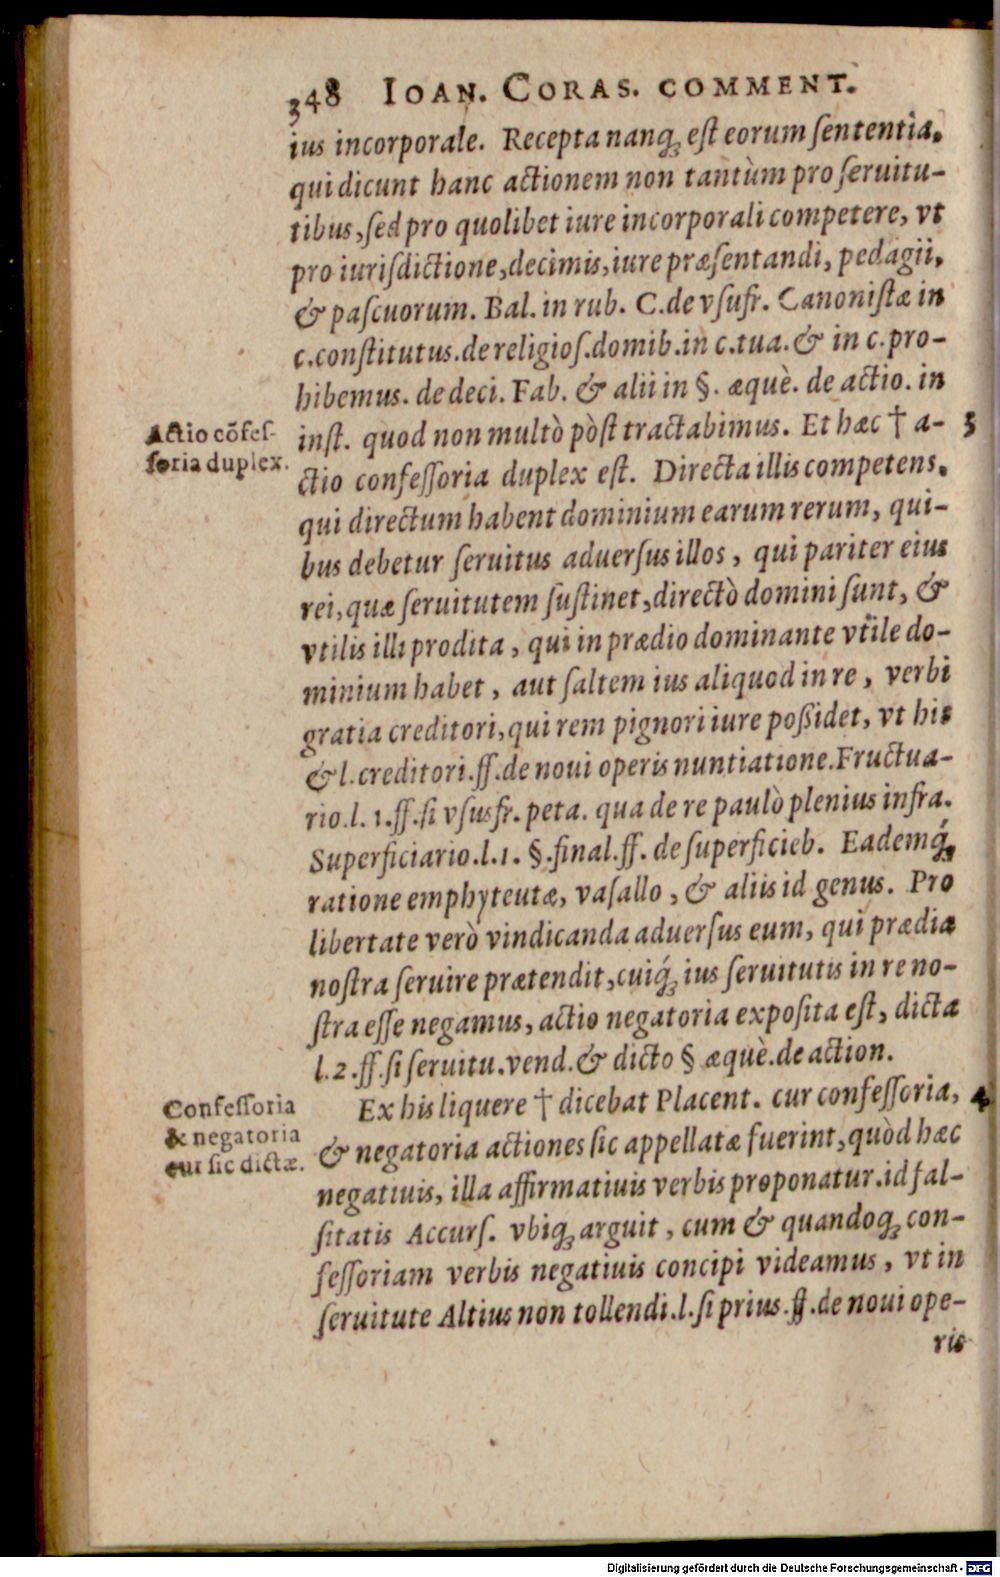 348 IOAN. CORAS. COMMENT.
ius incorporale. Recepta nanq; est eorum sententia,
qui dicunt hanc actionem non tantùm pro seruitu-
tibus, sed pro quolibet iure incorporali competere, vt
pro iurisdictione, decimis, iure præsentandi, pedagii,
& pascuorum. Bal. in rub. C. de vsufr. Canonistæ in
c. constitutus. de religios. domib. in c. tua. & in c. pro-
hibemus. de deci. Fab. & alii in §. æquè. de actio. in
Actio cõfes-
soria duplex.
inst. quod non multò pòst tractabimus. Et hæc † a- 3
ctio confessoria duplex est. Directa illis competens,
qui directum habent dominium earum rerum, qui-
bus debetur seruitus aduersus illos, qui pariter eius
rei, quæ seruitutem sustinet, directò domini sunt, &
vtilis illi prodita, qui in prædio dominante vtile do-
minium habet, aut saltem ius aliquod in re, verbi
gratia creditori, qui rem pignori iure poßidet, vt his
& l. creditori. ff. de noui operis nuntiatione. Fructua-
rio. l. 1. ff. si vsusfr. peta. qua de re paulò plenius infra.
Superficiario. l. 1. §. final. ff. de superficieb. Eademq́;
ratione emphyteutæ, vasallo, & aliis id genus. Pro
libertate verò vindicanda aduersus eum, qui prædia
nostra seruire prætendit, cuiq́; ius seruitutis in re no-
stra esse negamus, actio negatoria exposita est, dicta
l. 2. ff. si seruitu. vend. & dicto § æquè. de action.
Confessoria
& negatoria
cur sic dictæ.
Ex his liquere † dicebat Placent. cur confessoria, 4
& negatoria actiones sic appellatæ fuerint, quòd hæc
negatiuis, illa affirmatiuis verbis proponatur. id fal-
sitatis Accurs. vbiq; arguit, cum & quandoq; con-
fessoriam verbis negatiuis concipi videamus, vt in
seruitute Altius non tollendi. l. si prius. ff. de noui ope-
ris
Digitalisierung gefördert durch die Deutsche Forschungsgemeinschaft - DFG